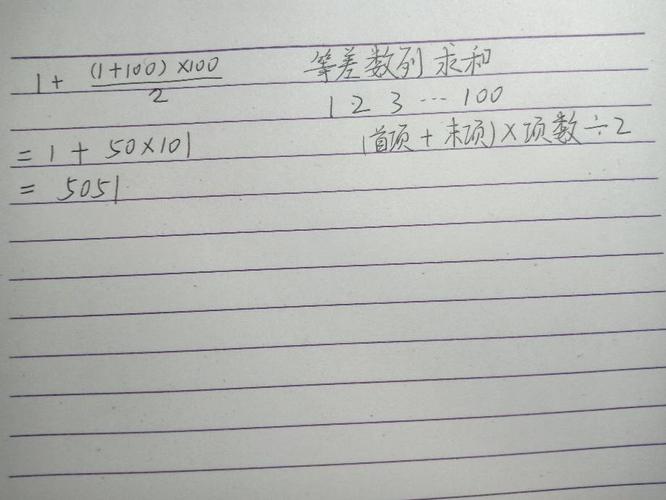 1+ (1+100)×100/2
= 1 + 50×101
= 5051
等差数列 求和
1 2 3 … 100
(首项+末项)×项数÷2